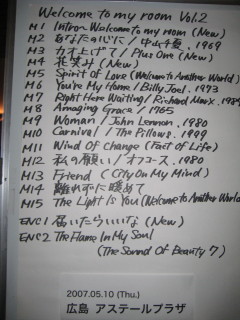 Welcome to my room Vol.2
M1 Intro~Welcome to my room (New)
M2 あなたの心に / 中山千夏. 1969
M3 カオ上げて / Plus One (New)
M4 花笑み (New)
M5 Spirit Of Love (Welcome to Another World)
M6 You're My Home / Billy Joel. 1973
M7 Right Here Waiting / Richard Marx. 1989
M8 Amazing Grace / 1965
M9 Woman / John Lennon. 1980
M10 Carnival / The Pillows. 1999
M11 Wind Of Change (Fact Of Life)
M12 私の願い / オフコース. 1980
M13 Friend (City On My Mind)
M14 離れずに暖めて
M15 The Light Is You (Welcome to Another World)
ENC1 届いたらいいな (New)
ENC2 The Flame In My Soul
(The Sound Of Beauty 7)
2007.05.10 (Thu.)
広島 アステールプラザ